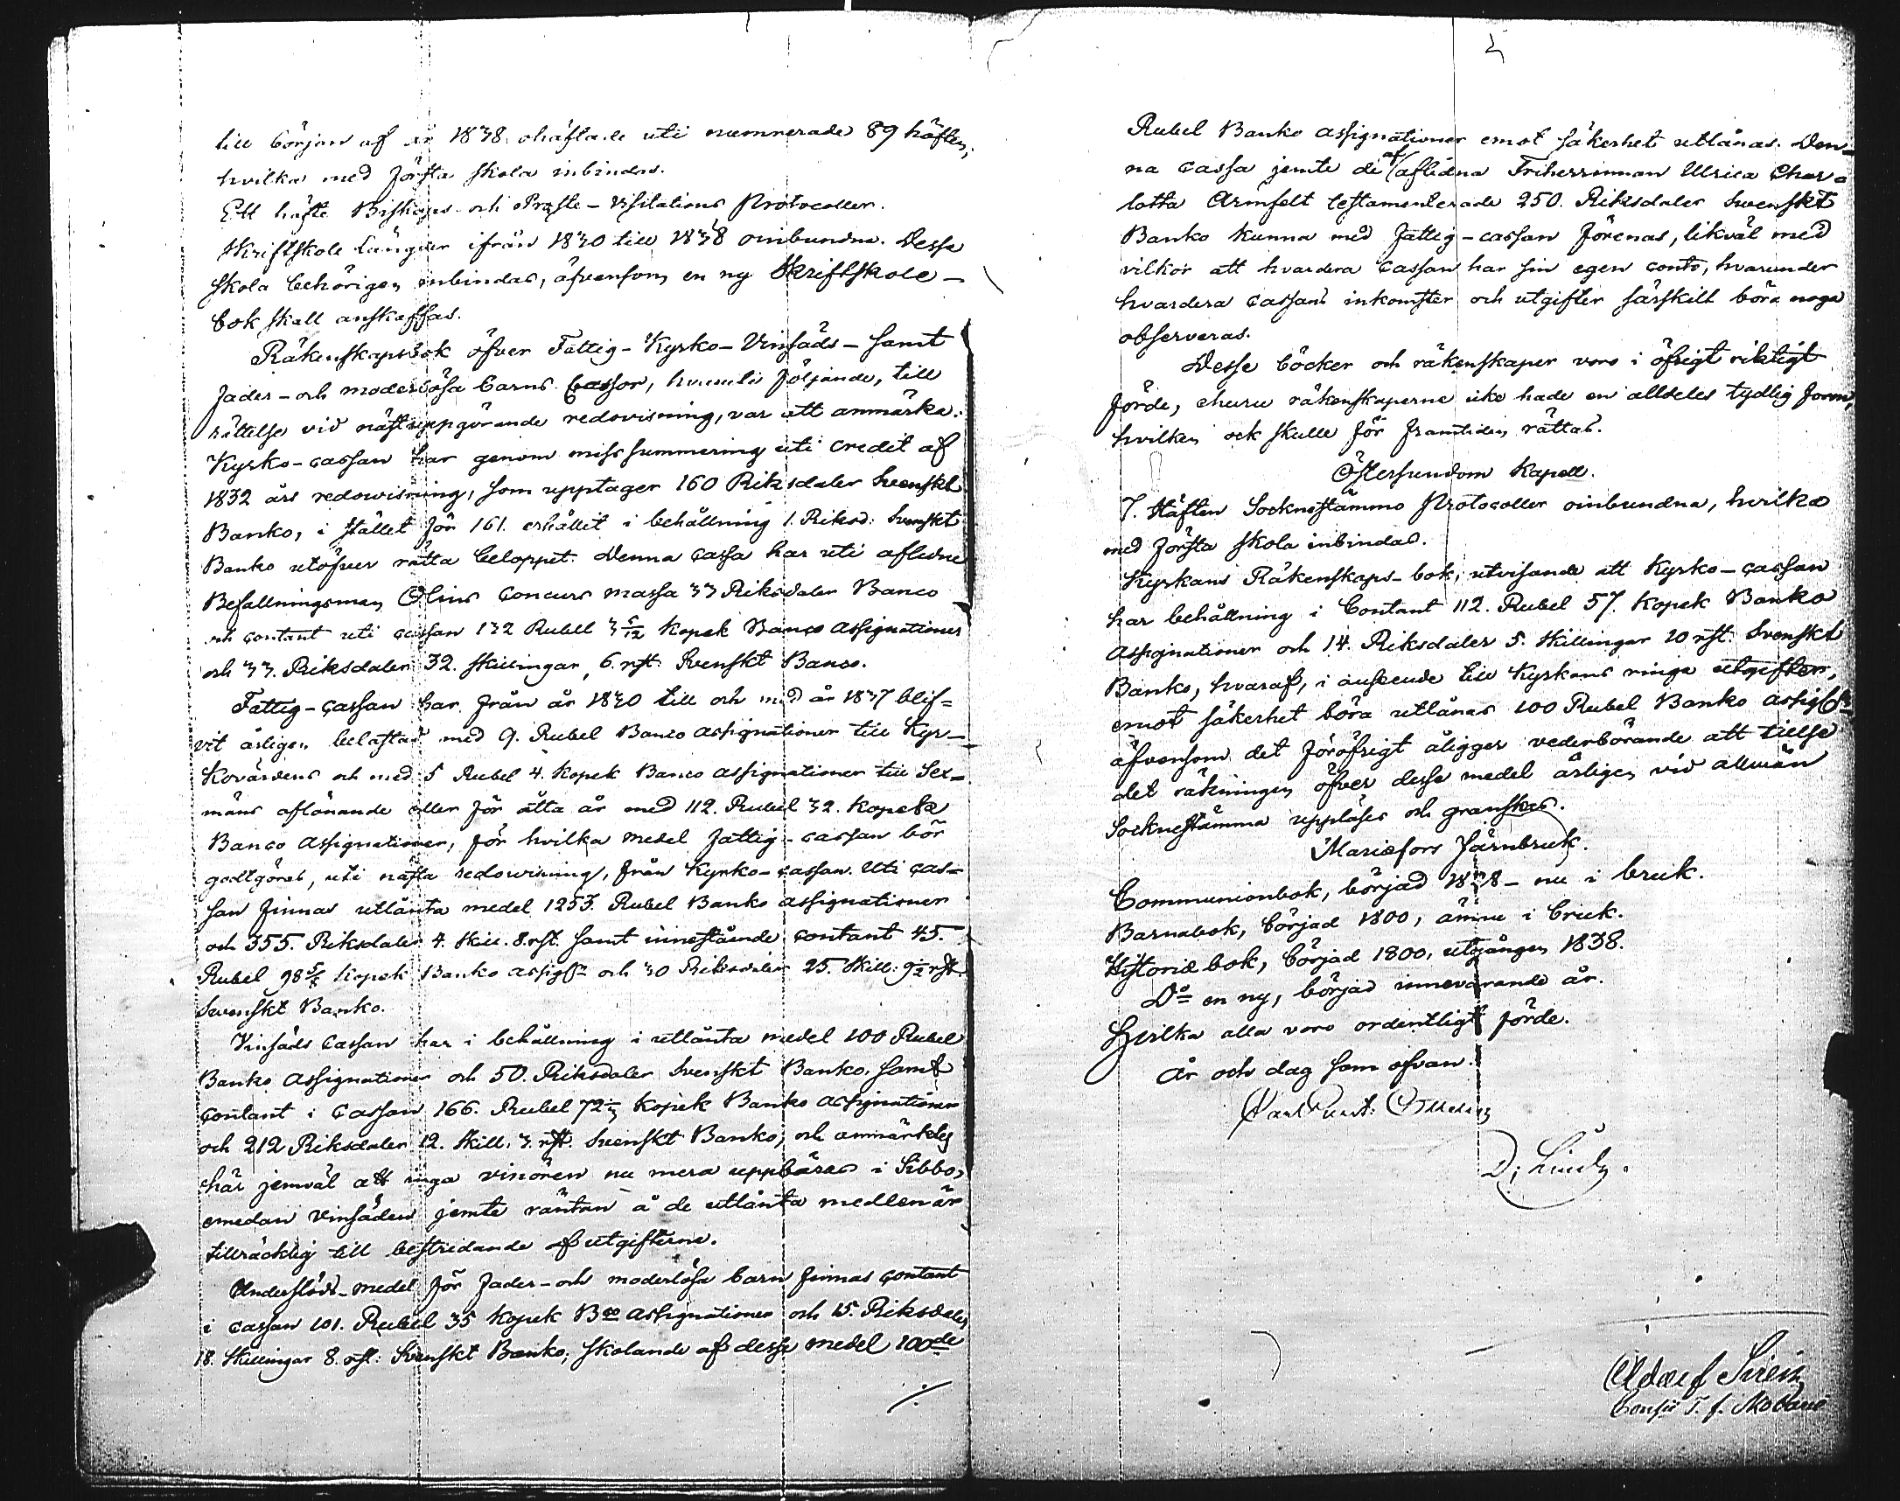 till början af år 1838. ohäftade uti numrerade 89 häften,
hvilka med första skola inbindas.
Ett häfte Biskops- och Proste-Visitations Protocoller.
Skriftskole Längder ifrån 1830 till 1838 oinbundna. Desse
skola behörigen inbindas, äfvensom en ny Skriftskole-
bok skall anskaffas.
Räkenskapsbok öfver Fattig- Kyrko- Vinsäds- samt
fader- och moderlösa barns Cassor, hvaruti följande, till
rättelse vid nästuppgörande redovisning, var att anmärka.
Kyrko-cassan har genom missummering uti credit af
1832 års redowisning, som upptager 160 Riksdaler Svenskt
Banko, i stället för 161. erhållit i behållning 1. Riksd: Svenskt
Banko utöfver rätta beloppet. Denna cassa har uti aflidne
Befallningsman Olins Concurs massa 33 Riksdaler Banco
och contant uti cassan 132 Rubel 3 5/12 Kopek Banco Assignationer
och 33. Riksdaler 32. skillingar 6. rst. Svenskt Banco.
Fattig-cassan har från år 1830 till och med år 1837 blif=
vit årligen belastad med 9. Rubel Banco assignationer till Kyr-
kovärdens och med 5 Rubel 4. Kopek Banco assignationer till Sex-
mäns aflönande eller för åtta år med 112. Rubel 32. Kopek
Banco Assignationer, för hvilka medel fattig-cassan bör
godtgöras, uti nästa redowisning, från Kyrko-cassan. Uti cas=
san finnas utlånta medel 1253. Rubel Banko assignationer
och 355. Riksdaler 4. Skill. 8. rst. samt innestående contant 45.
Rubel 98 Kopek Banko assign och 30 Riksdaler 25. Skill: 9 1/2 rst.
Svenskt Banko.
Vinsäds Cassan har i behållning i utlånta medel 100 Rubel
Banko Assignationer och 50. Riksdaler Svenskt Banko, samt
contant i Cassan 166. Rubel 72 Kopek Banko assignationer
och 212 Riksdaler 12. Skill. 3. rst. Svenskt Banko, och anmärktes
här jemväl att inga vinören nu mera uppbäras i Sibbo,
emedan vinsäden jemte räntan å de utlånta medlen är
tillräcklig till bestridande af utgifterne.
Understöds-medel för fader- och moderlösa barn finnas contant
i cassan 101. Rubel 35 Kopek Bco assignationer och 15. Riksdaler
18. Skillingar 8. rst: Svenskt Banko; skolande af desse medel 100de
./.
Rubel Banko assignationer emot säkerhet utlånas. Den-
na cassa jemte de af aflidna Friherrinnan Ulrica Char=
lotta Armfelt testamenterade 250. Riksdaler Swenskt
Banko kunna med fattig-cassan förenas, likväl med
vilkor att hvardera cassan har sin egen conto, hvarunder
hvardera cassans inkomster och utgifter särskilt böra noga
observeras.
Desse böcker och räkenskaper voro i öfrigt riktigt
förde, ehuru räkenskaperne icke hade en alldeles tydlig form,
hvilken ock skulle för framtiden rättas.
Östersundom Kapell.
7. Häften Sockenstämmo Protocoller oinbundna, hvilka
med första skola inbindas.
Kyrkans Räkenskaps-bok, utvisande att Kyrko-cassan
har behållning i Contant 112. Rubel 57. Kopek Banko
Assignationer och 14. Riksdaler 5. Skillingar 10 rst. Svenskt
Banko, hvaraf, i anseende till Kyrkans ringa utgifter,
emot säkerhet böra utlånas 100 Rubel Banko assign
äfvensom det föröfrigt åligger vederbörande att tillse
det räkningen öfver desse medel årligen vid allmän
Sockenstämma uppläses och granskas.
Mariefors Järnbruk.
Communionbok, börjad 1838 - nu i bruk.
Barnabok, börjad 1800, ännu i bruk.
Historiæ bok, börjad 1800, utgången 1838.
Do en ny, börjad innevarande år.
Hvilka alla voro ordentligt förde.
År och dag som ofvan.
D. Lindh.
Adolf Sirén